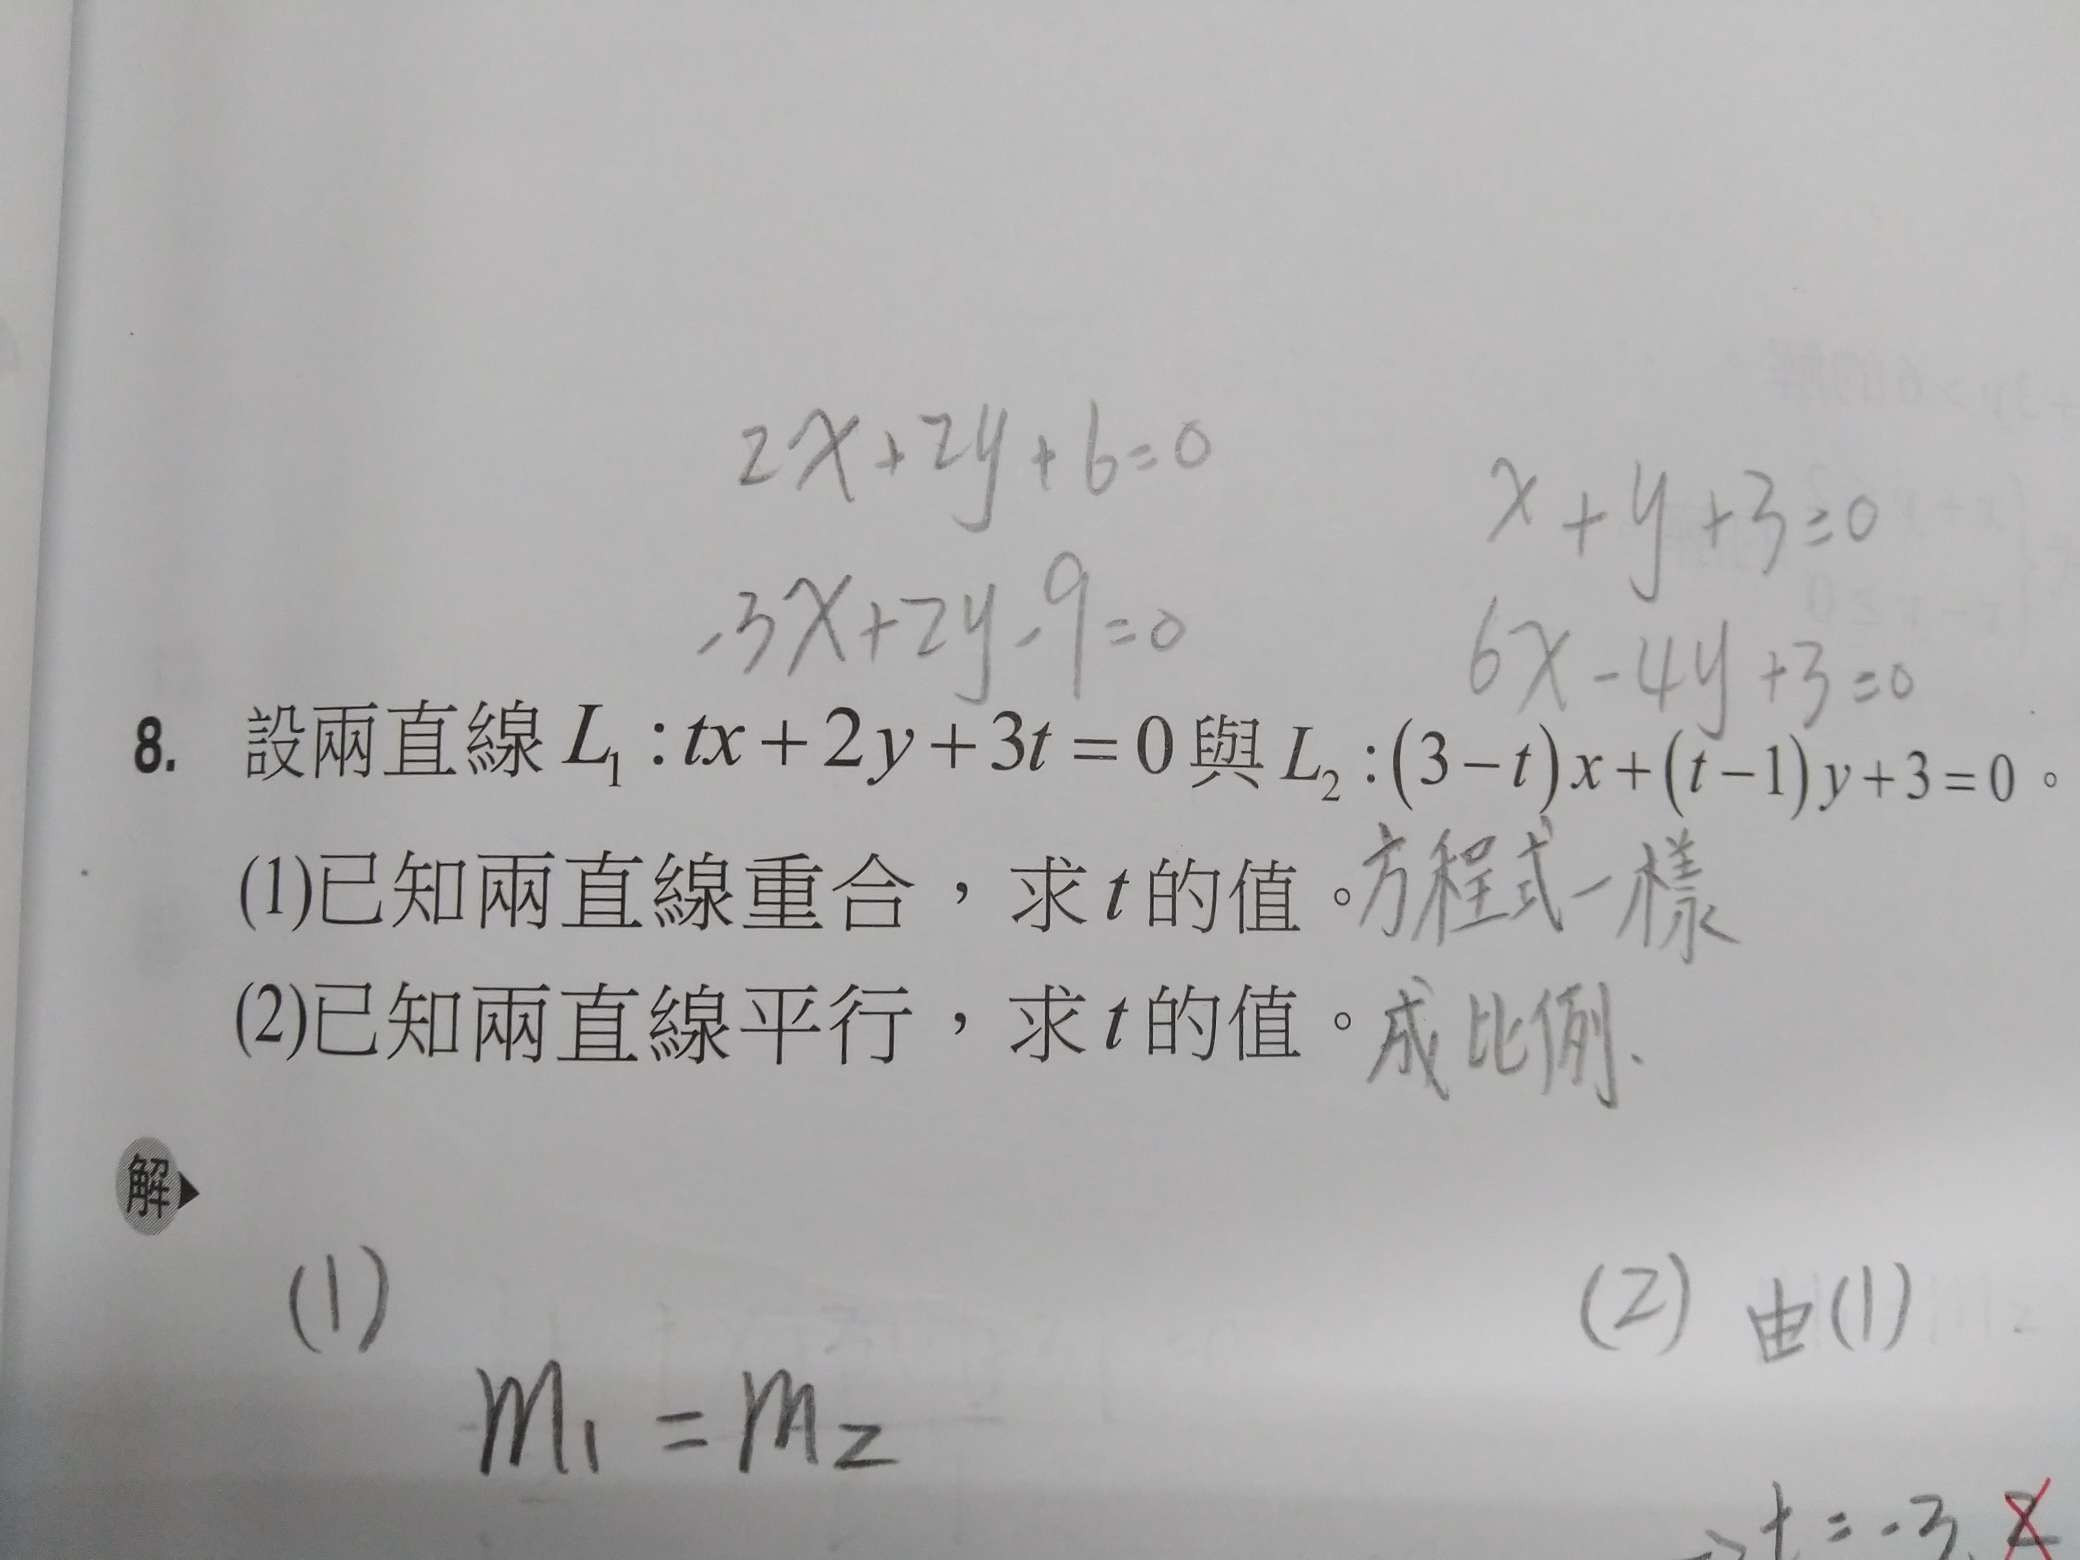 2x+2y+6=0
x+y+3=0
-3x+2y-9=0
6x-4y+3=0
8. 設兩直線L₁:tx+2y+3t=0與L₂:(3-t)x+(t-1)y+3=0。
(1)已知兩直線重合，求t的值。方程式一樣
(2)已知兩直線平行，求t的值。成比例.
解
(1)
(2) 由(1)
m₁=m₂
→t=-3,2